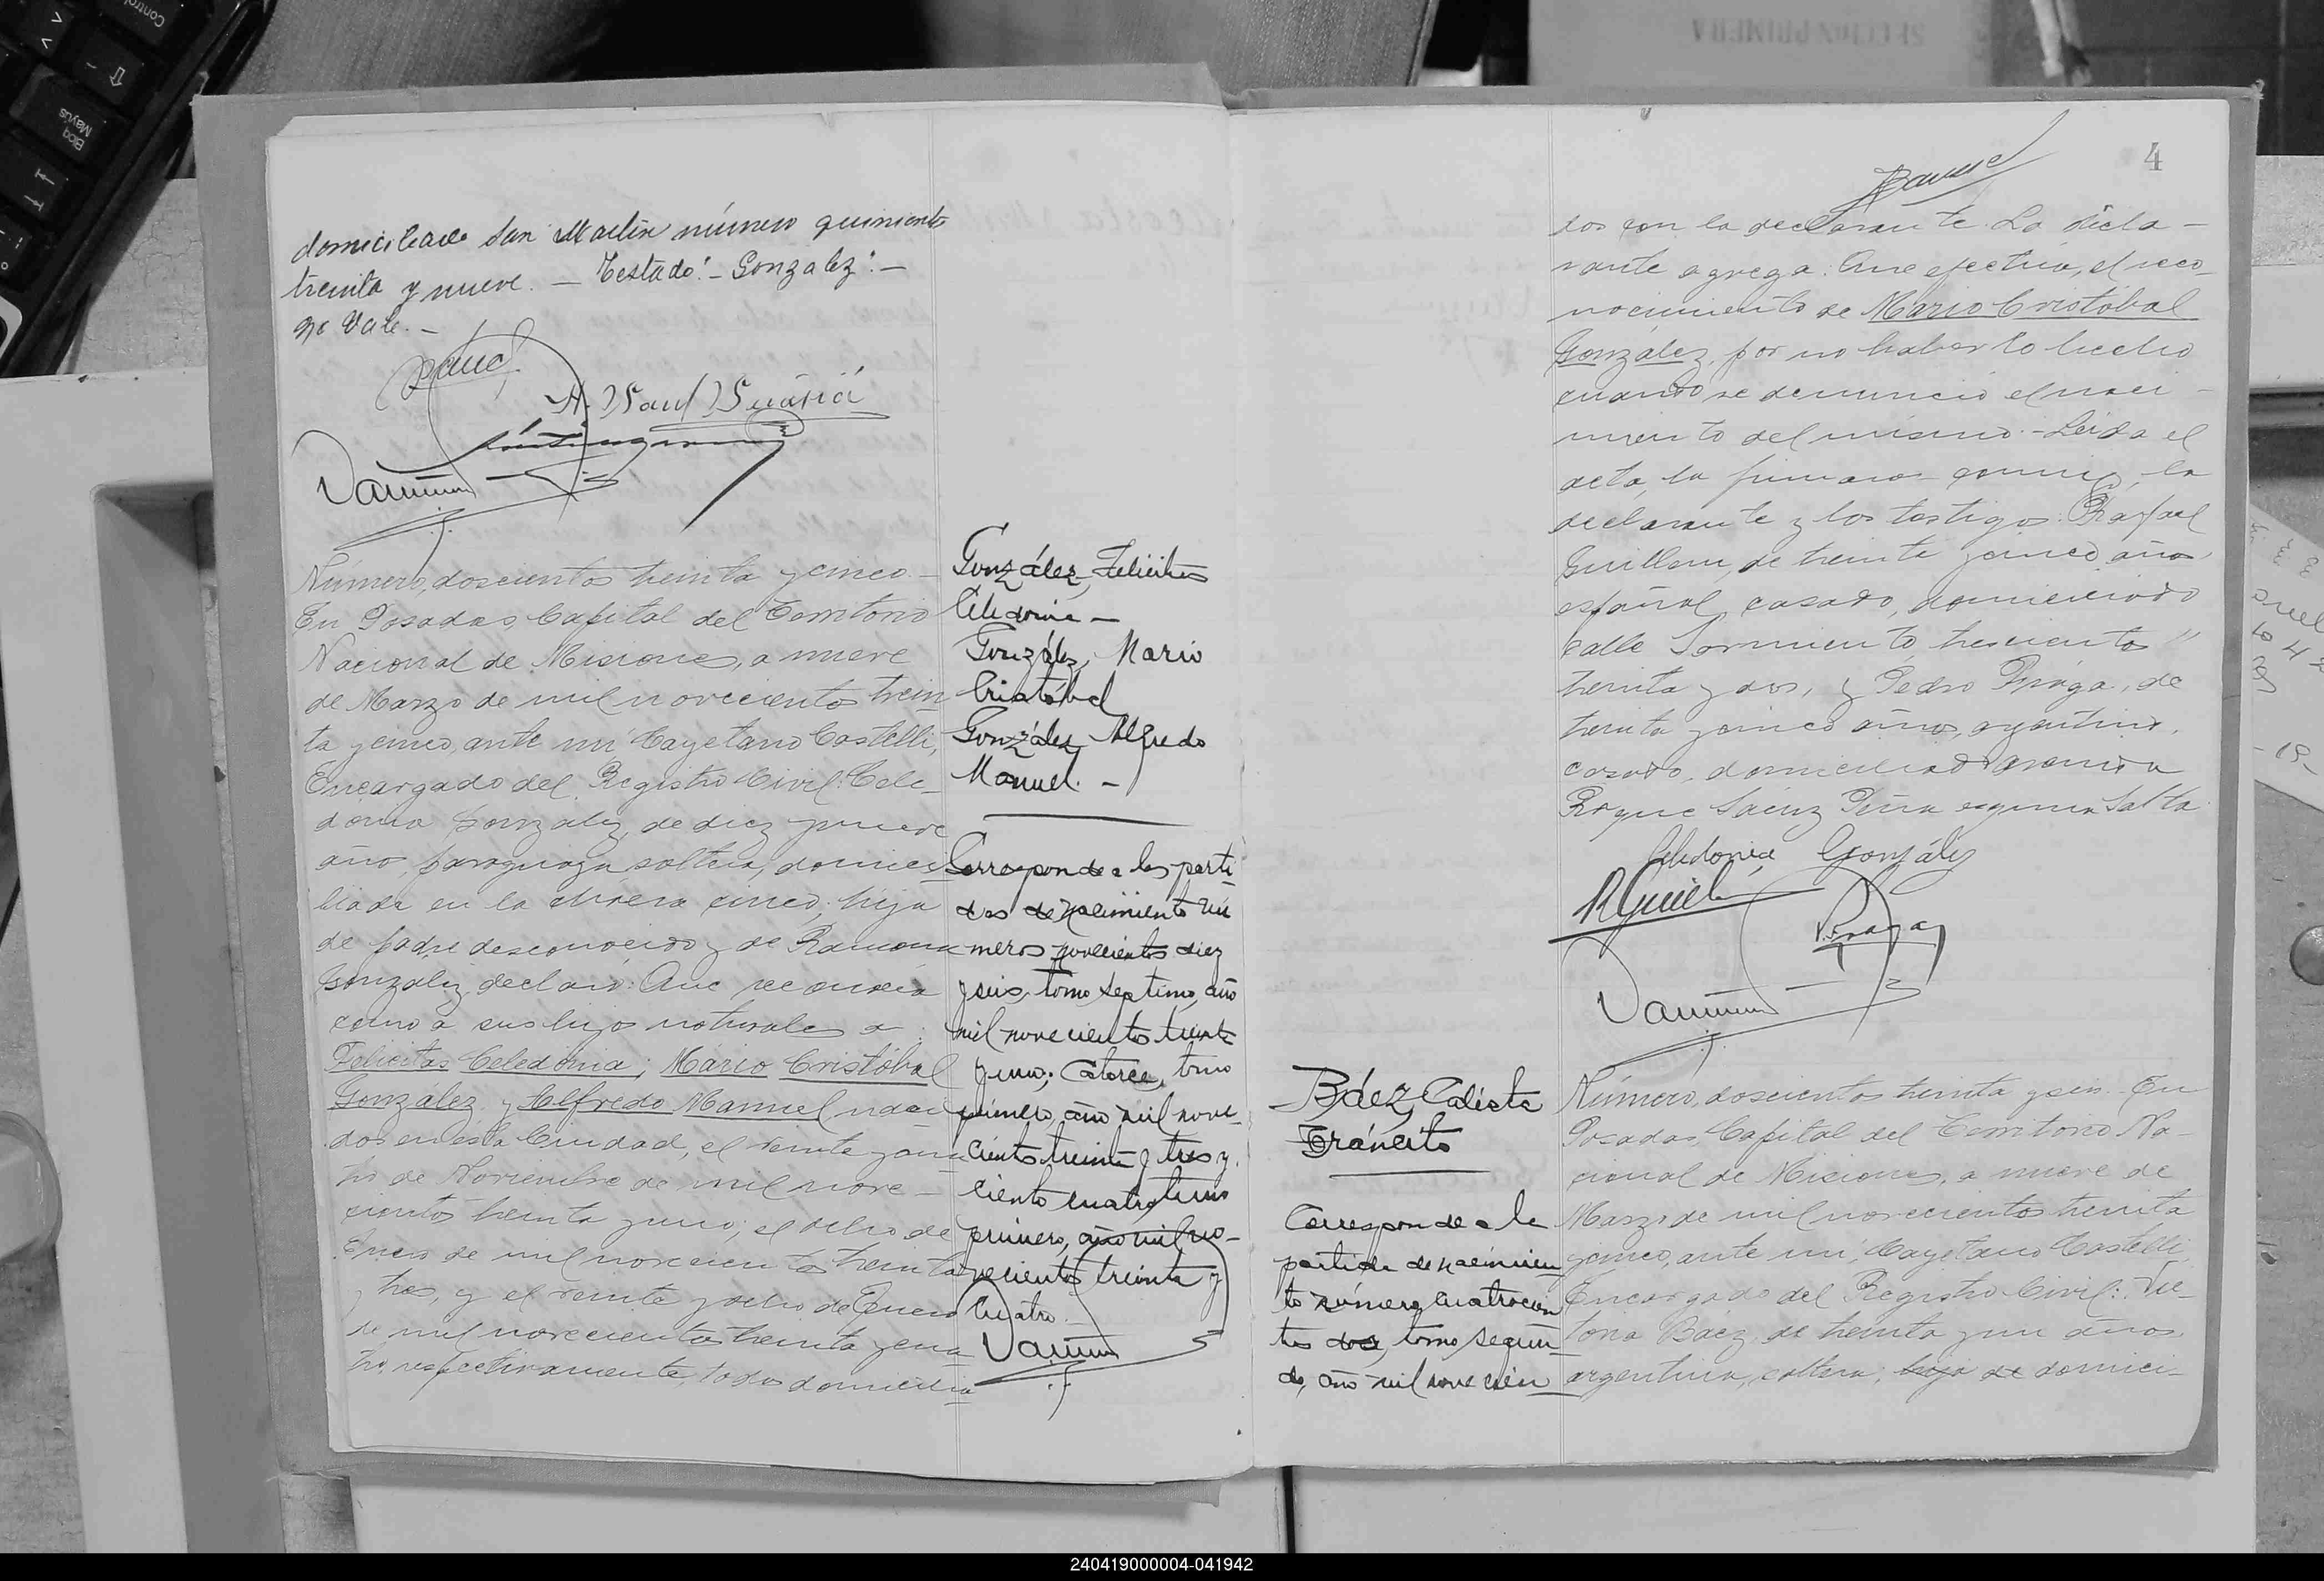 domiciliado San Martín número quinientos
treinta y nueve. — Testado: - Gonzalez: —
no Vale. —
Número, doscientos treinta y cinco. —
En Posadas, Capital del Territorio
Nacional de Misiones, a nueve
de Marzo de mil novecientos trein
ta y cinco, ante mí Cayetano Castelli,
Encargado del Registro Civil: Cele-
donia Gonzalez, de diez y nueve
año, paraguaya, soltera, domici
liada en la chacra cinco, hija
de padre desconocido y de Ramona
Gonzalez, declaró: Que reconocía
como a sus hijos naturales a:
Felicitas Celedonia; Mario Cristóbal
González y Alfredo Manuel naci
dos en esta Ciudad, el veinte y cua
tro de Noviembre de mil nove-
cientos treinta y uno; el ocho de
Enero de mil novecientos treinta
y tres, y el veinte y ocho de Enero
de mil novecientos treinta y cua
tro, respectivamente, todos domicilia
González, Felicitas
Celedonia —
González, Mario
Cristóbal
González, Alfredo
Manuel. —
Corresponde a las parti-
das de nacimiento nú
meros novecientos diez
y seis, tomo septimo, año
mil novecientos treinta
y uno; Catorce, tomo
primero, año mil nove-
cientos treinta y tres y
ciento cuatro tomo
primero, año mil no-
vecientos treinta y
Cuatro. —
4
dos con la declarante. La decla-
rante agrega: Que efectúa, el reco-
nocimiento de Mario Cristóbal
González, por no haberlo hecho
cuando se denunció el naci-
miento del mismo. - Leida el
acta, la firmaron conmigo, la
declarante y los testigos: Rafael
Guillem, de treinta y cinco años
español, casado, domiciliado
calle Sarmiento trescientos
treinta y dos, y Pedro Praga, de
treinta y cinco años, argentino,
casado, domiciliado avenida
Roque Sáenz Peña esquina Salta.
Celedonia González
Báez, Calista
Tránsito
Corresponde a la
partida de nacimien
to número cuatrocien
tos dos, tomo segun-
do, año mil novecien
Número, doscientos treinta y seis. En
Posadas, Capital del Territorio Na-
cional de Misiones, a nueve de
Marzo de mil novecientos treinta
y cinco, ante mí, Cayetano Castelli,
Encargado del Registro Civil: Vic-
toria Báez, de treinta y un años
argentina, soltera; hija de domici-
240419000004-041942